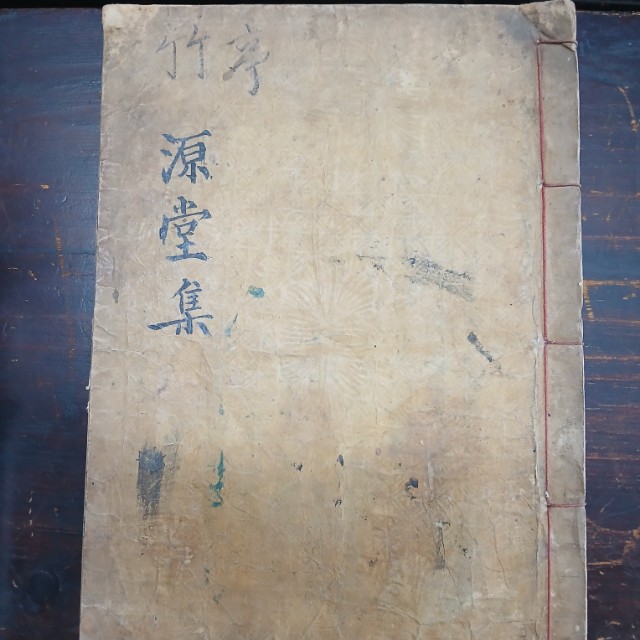 竹亭
源堂集